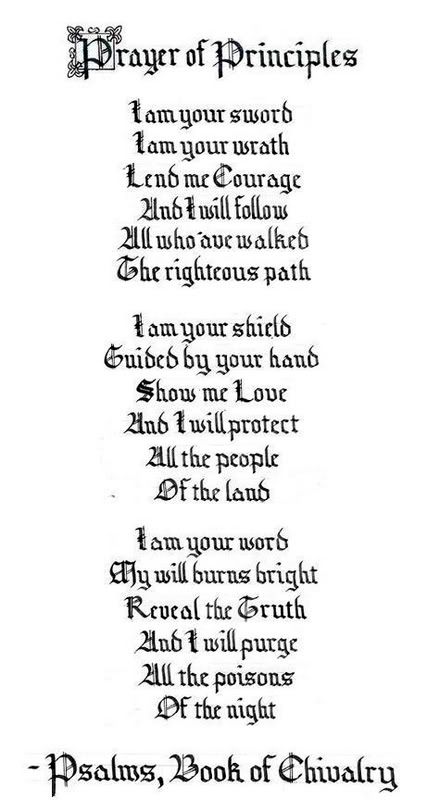 Prayer of Principles
I am your sword
I am your wrath
Lend me Courage
And I will follow
All who'ave walked
The righteous path
I am your shield
Guided by your hand
Show me Love
And I will protect
All the people
Of the land
I am your word
My will burns bright
Reveal the Truth
And I will purge
All the poisons
Of the night
- Psalms, Book of Chivalry